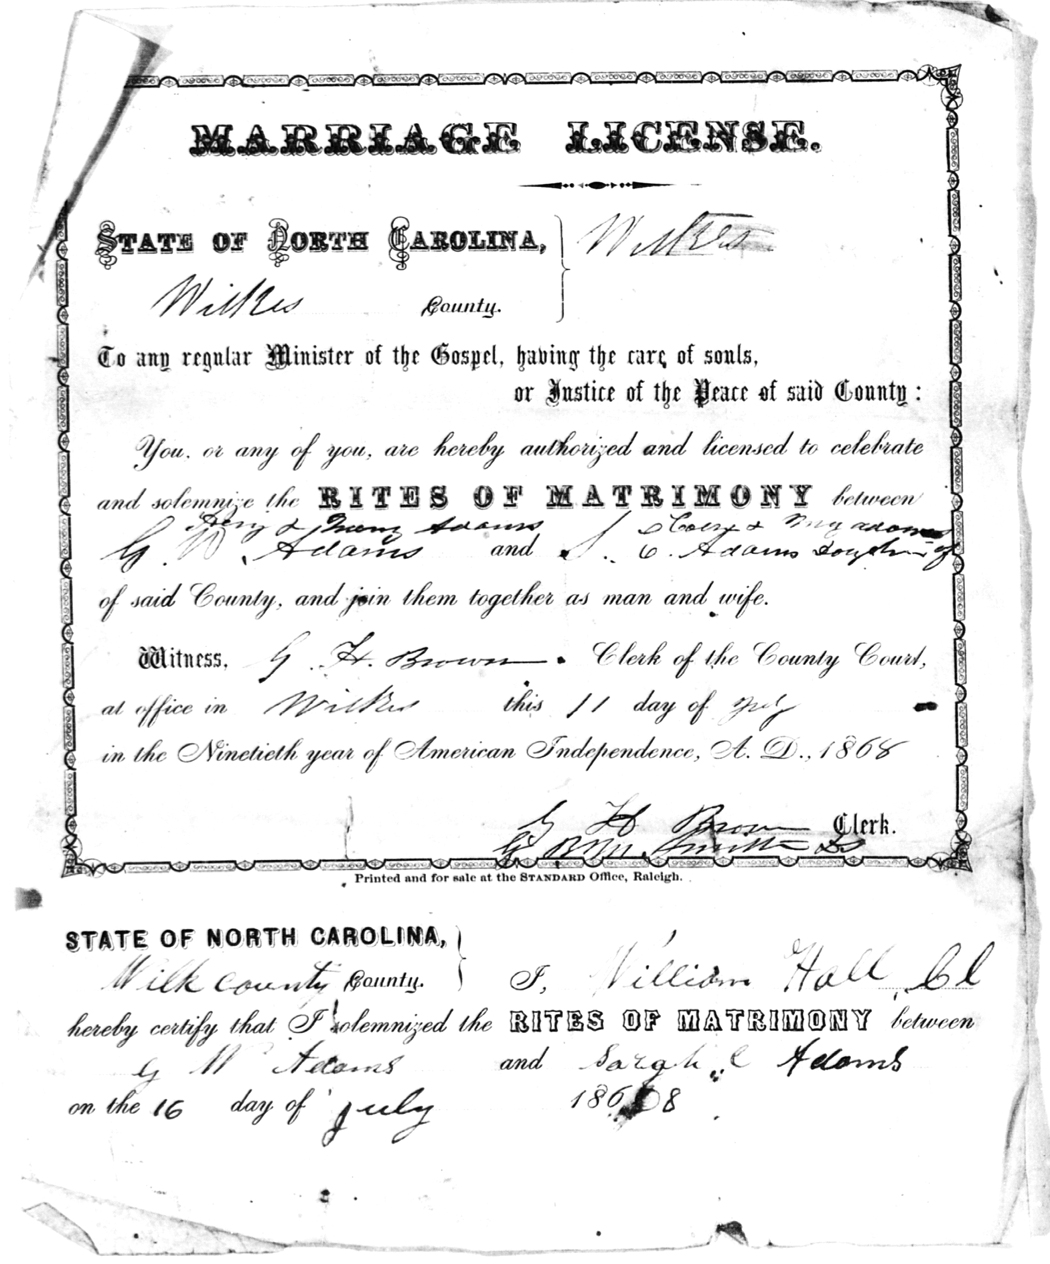 MARRIAGE LICENSE.
STATE OF NORTH CAROLINA,
Wilkes
Wilkes County.
To any regular Minister of the Gospel, having the care of souls,
or Justice of the Peace of said County:
You, or any of you, are hereby authorized and licensed to celebrate
and solemnize the RITES OF MATRIMONY between
& Adams & Adams
G W. Adams and S. C. Adams
of said County, and join them together as man and wife.
Witness, G. H. Brown Clerk of the County Court,
at office in Wilkes this 11 day of
in the Ninetieth year of American Independence, A. D., 1868
G H Brown Clerk.
Printed and for sale at the STANDARD Office, Raleigh.
STATE OF NORTH CAROLINA,
Wilk county County. I, William Hall, Cl
hereby certify that I solemnized the RITES OF MATRIMONY between
G W Adams and Sarah C Adams
on the 16 day of july 1868